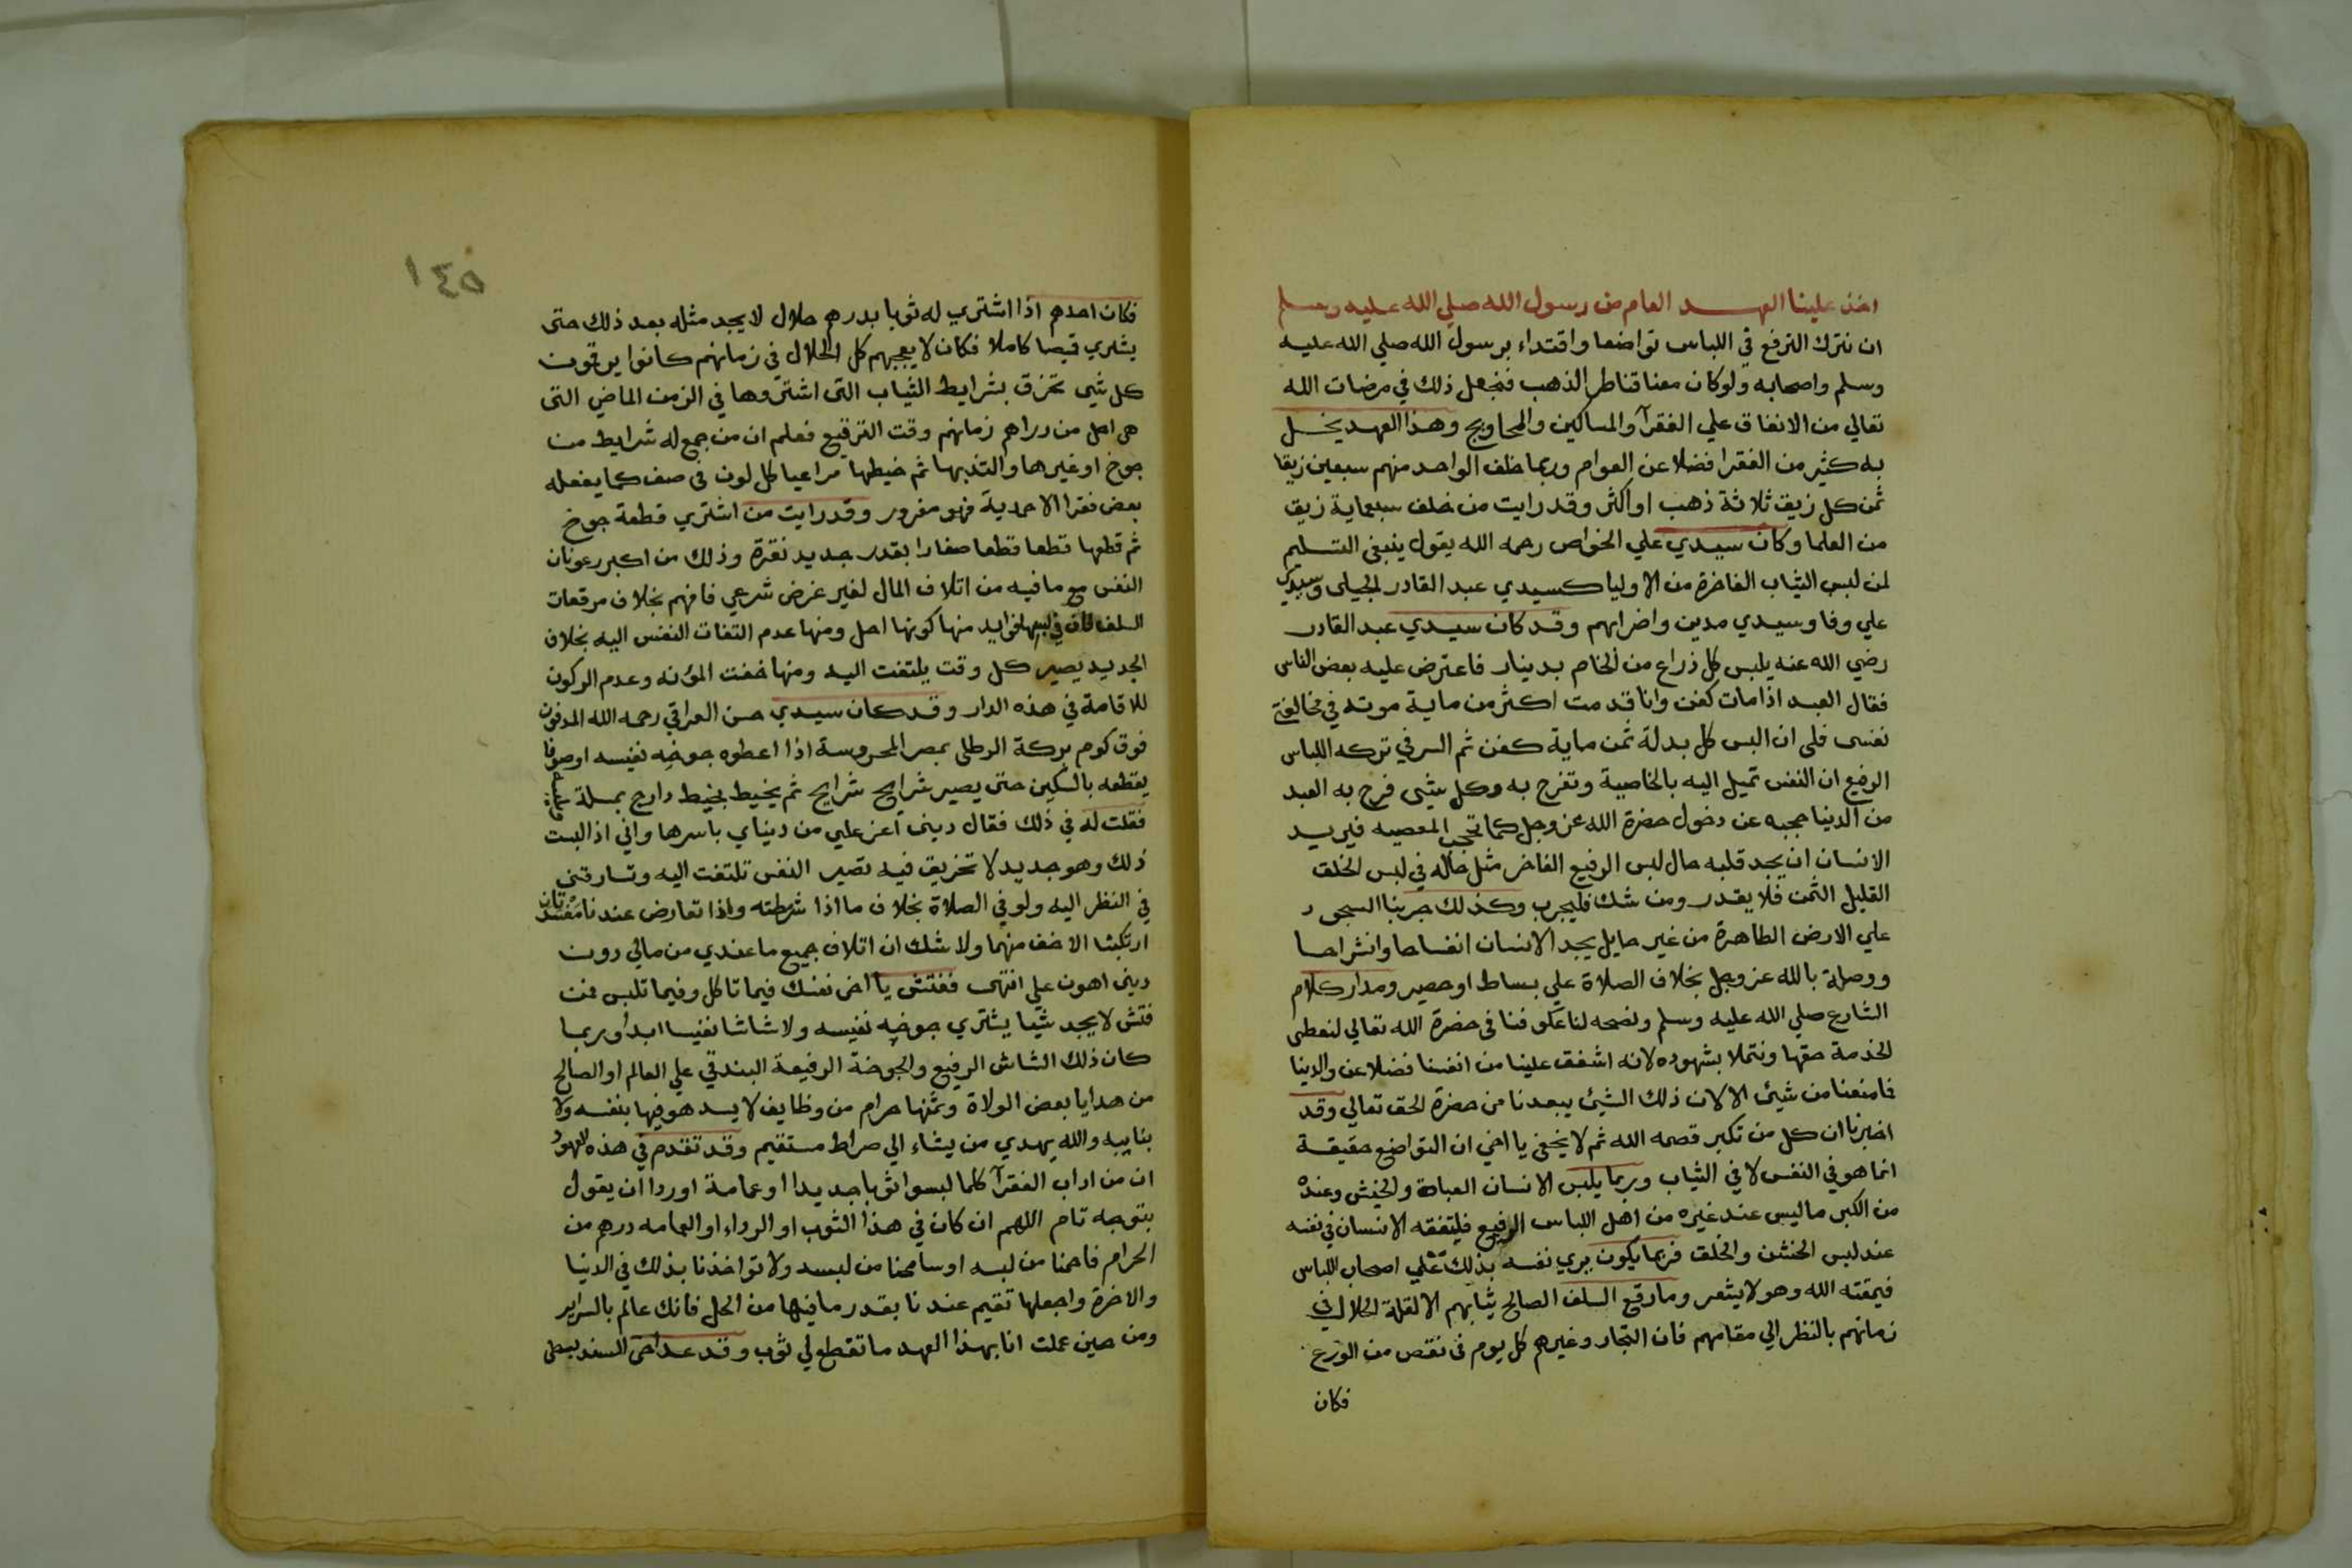 اخذ علينا العهد العام من رسول الله صلي الله عليه وسلم
ان نترك الترفع في اللباس تواضعا واقتداء برسول الله صلي الله عليه
وسلم واصحابه ولو كان معنا قناطر الذهب فنجعل ذلك في مرضات الله
تعالي من الانفاق علي الفقرآ والمساكين والمحاويج وهذا العهد يخل
به كثير من الفقرا فضلا عن العوام وربما خلف الواحد منهم سبعين زيقا
ثمن كل زيق ثلاثة ذهب او اكثر وقد رايت من خلف سبعماية زيق
من العلما وكان سيدي علي الخواص رحمه الله يقول ينبغي التسليم
لمن لبس الثياب الفاخرة من الاوليا كسيدي عبد القادر الجيلي وسيدي
علي وفا وسيدي مدين واضرابهم وقد كان سيدي عبد القادر
رضي الله عنه يلبس كل ذراع من الخام بدينار فاعترض عليه بعض الناس
فقال العبد اذا مات كفن وانا قد مت اكثر من ماية موتة في مخالفة
نفسى فلى ان البس كل بدلة ثمن ماية كفن ثم السر في تركه اللباس
الرفيع ان النفس تميل اليه بالخاصية وتفرح به وكل شيى فرح به العبد
من الدنيا حجبه عن دخول حضرة الله عز وجل كما تحجب المعصيه فيريد
الانسان ان يجد قلبه حال لبس الرفيع الفاخر مثل حاله في لبس الخلق
القليل الثمن فلا يقدر ومن شك فليجرب وكذلك جربنا السجود
علي الارض الطاهرة من غير حايل يجد الانسان انفساحا وانشراحا
ووصلة بالله عز وجل بخلاف الصلاة علي بساط او حصير ومدار كلام
الشارع صلي الله عليه وسلم ونصحه لنا عكوفنا في حضرة الله تعالي لنعطى
الخدمة حقها ونتملا بشهوده لانه اشفق علينا من انفسنا فضلا عن والدينا
فما منعنا من شيئ الا لان ذلك الشيئ يبعدنا من حضرة الحق تعالي وقد
اخبرنا ان كل من تكبر قصمه الله ثم لا يخفى يا اخي ان التواضع حقيقة
انما هو في النفس لا في الثياب وربما يلبس الانسان العباة والخيش وعنده
من الكبر ما ليس عند غيره من اهل اللباس الرفيع فليتفقه الانسان في نفسه
عند لبس الخشن والخلق فربما يكون يري نفسه بذلك علي اصحاب اللباس
فيمقته الله وهو لا يشعر وما رقع السلف الصالح ثيابهم الا لقلة الحلال في
زمانهم بالنظر الي مقامهم فان التجار وغيرهم كل يوم في نقص من الورع
فكان
١٤٥
فكان احدهم اذا اشتري له ثوبا بدرهم حلال لا يجد مثله بعد ذلك حتى
يشتري قميصا كاملا فكان لا يعجبهم كل الحلال في زمانهم كانوا يرقعون
كل شيى تخرق بشرايط الثياب التى اشتروها في الزمن الماضي التى
هى احل من دراهم زمانهم وقت الترقيع فعلم ان من جمع له شرايط من
جوخ او غيرها والتذبها ثم خيطها مراعيا كل لون في صف كما يفعله
بعض فقرا الاحمدية فهو مغرور وقد رايت من اشتري قطعة جوخ
ثم قطعها قطعا قطعا صغارا بقدر جديد نقرة وذلك من اكبر رعونات
النفس مع ما فيه من اتلاف المال لغير غرض شرعي فافهم بخلاف مرقعات
السلف فان في لبسها فوايد منها كونها احل ومنها عدم التفات النفس اليه بخلاف
الجديد يصير كل وقت يلتفت اليه ومنها خفت المؤنه وعدم الركون
للاقامة في هذه الدار وقد كان سيدي حسن العراقي رحمه الله المدفون
فوق كوم بركة الرطلى بمصر المحروسة اذا اعطوه جوخه نفيسه او صوفا
يقطعه بالسكين حتى يصير شرايح شرايح ثم يخيط بخيط دارج بمسلة
فقلت له في ذلك فقال دينى اعز علي من دنياي باسرها واني اذا لبست
ذلك وهو جديد لا تخريق فيه تصير النفس تلتفت اليه وتسارقني
في النظر اليه ولو في الصلاة بخلاف ما اذا شرطته واذا تعارض عندنا مفسدتان
ارتكبنا الاخف منهما ولا شك ان اتلاف جميع ما عندي من مالي دون
دينى اهون علي انتهى ففتش يا اخى نفسك فيما تاكل وفيما تلبس فمن
فتش لا يجد شيا يشتري جوخه نفيسه ولا شاشا نفيسا ابدا وربما
كان ذلك الشاش الرفيع والجوخة الرفيعة البندقي علي العالم او الصالح
من هدايا بعض الولاة وثمنها حرام من وظايف لا يسد هو فيها بنفسه ولا
بنايبه والله يهدي من يشاء الي صراط مستقيم وقد تقدم في هذه العهود
ان من اداب الفقرآ كلما لبسوا ثوبا جديدا او عمامة او ردا ان يقول
بتوجه تام اللهم ان كان في هذا الثوب او الرداء او العمامه درهم من
الحرام فاحمنا من لبسه او سامحنا من لبسه ولا تواخذنا بذلك في الدنيا
والاخرة واجعلها تقيم عندنا بقدر ما فيها من الحل فانك عالم بالسراير
ومن حين عملت انا بهذا العهد ما تقطع لي ثوب وقد عد اهل السند لبعض